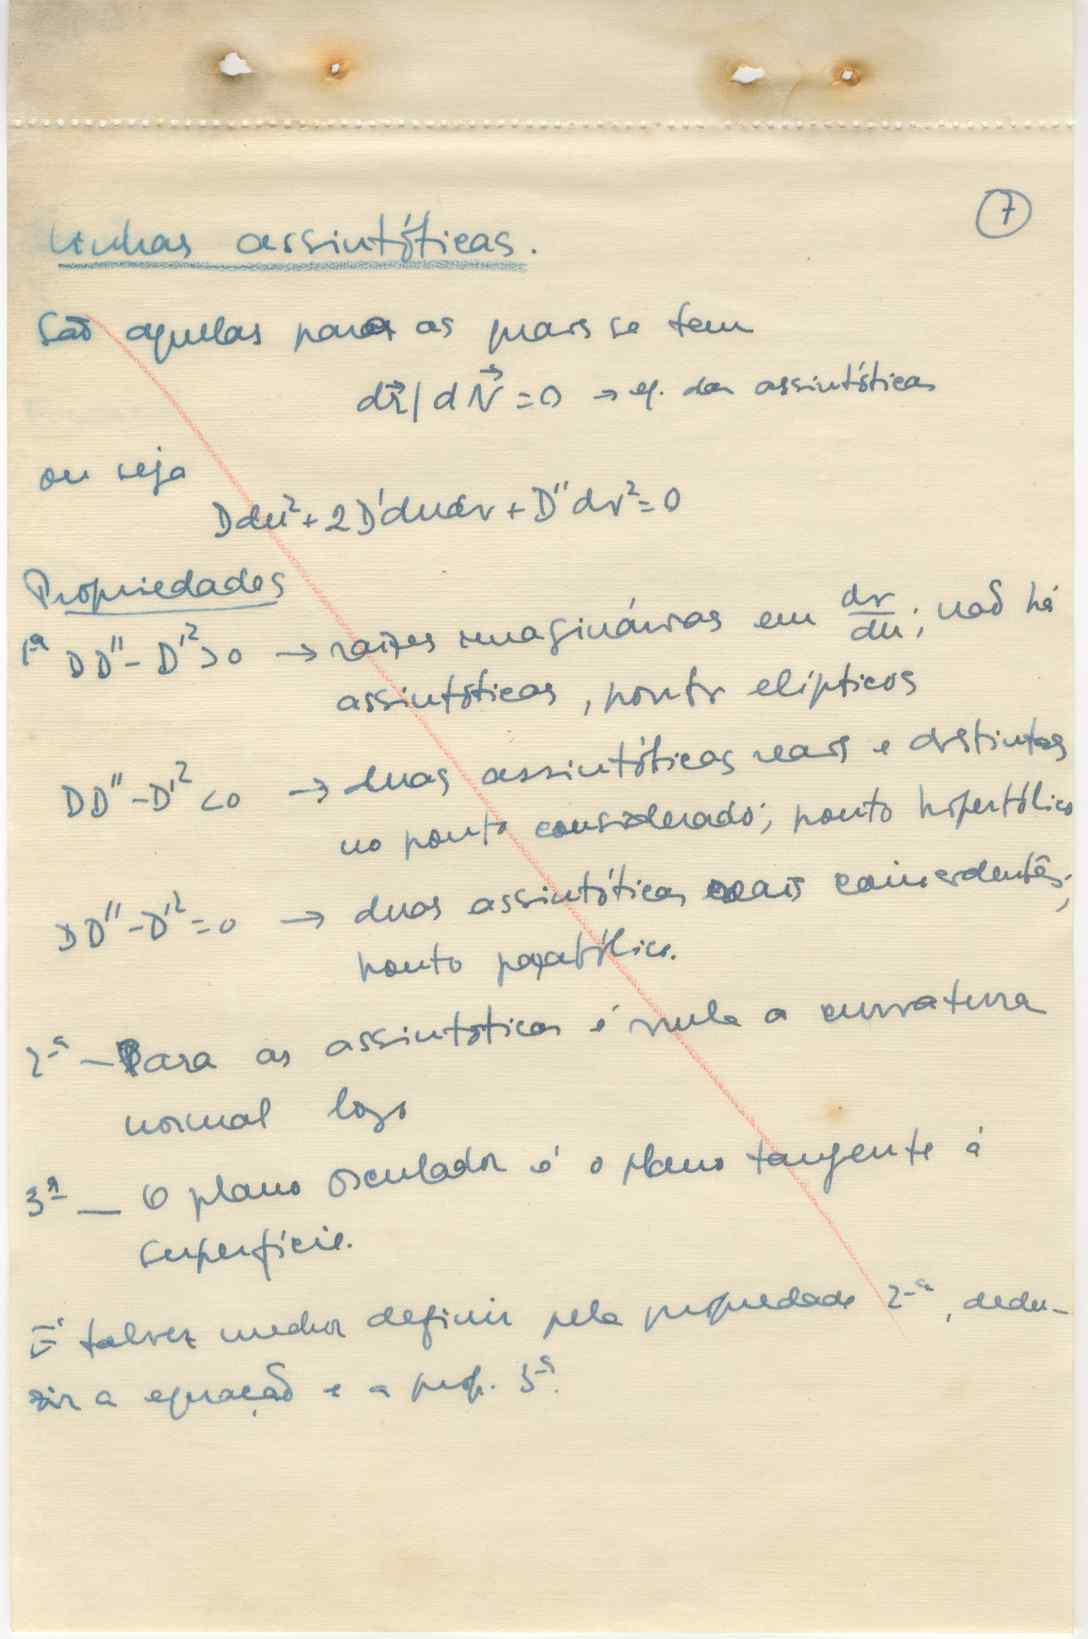 7
Linhas assintóticas.
São aquelas para as quais se tem
dr⃗ | dN⃗ = 0 → eq. das assintóticas
ou seja
Ddu² + 2D'dudv + D''dv² = 0
Propriedades
1ª DD'' - D'² > 0 → raízes imaginárias em dv/du; não há
assintóticas, ponto elípticos
DD'' - D'² < 0 → duas assintóticas reais e distintas
no ponto considerado; ponto hiperbólico
DD'' - D'² = 0 → duas assintóticas reais coincidentes;
ponto parabólico.
2ª - Para as assintóticas é nula a curvatura
normal logo
3ª - O plano osculador é o plano tangente à
superfície.
É talvez melhor definir pela propriedade 2ª, dedu-
zir a equação e a prop. 3ª.